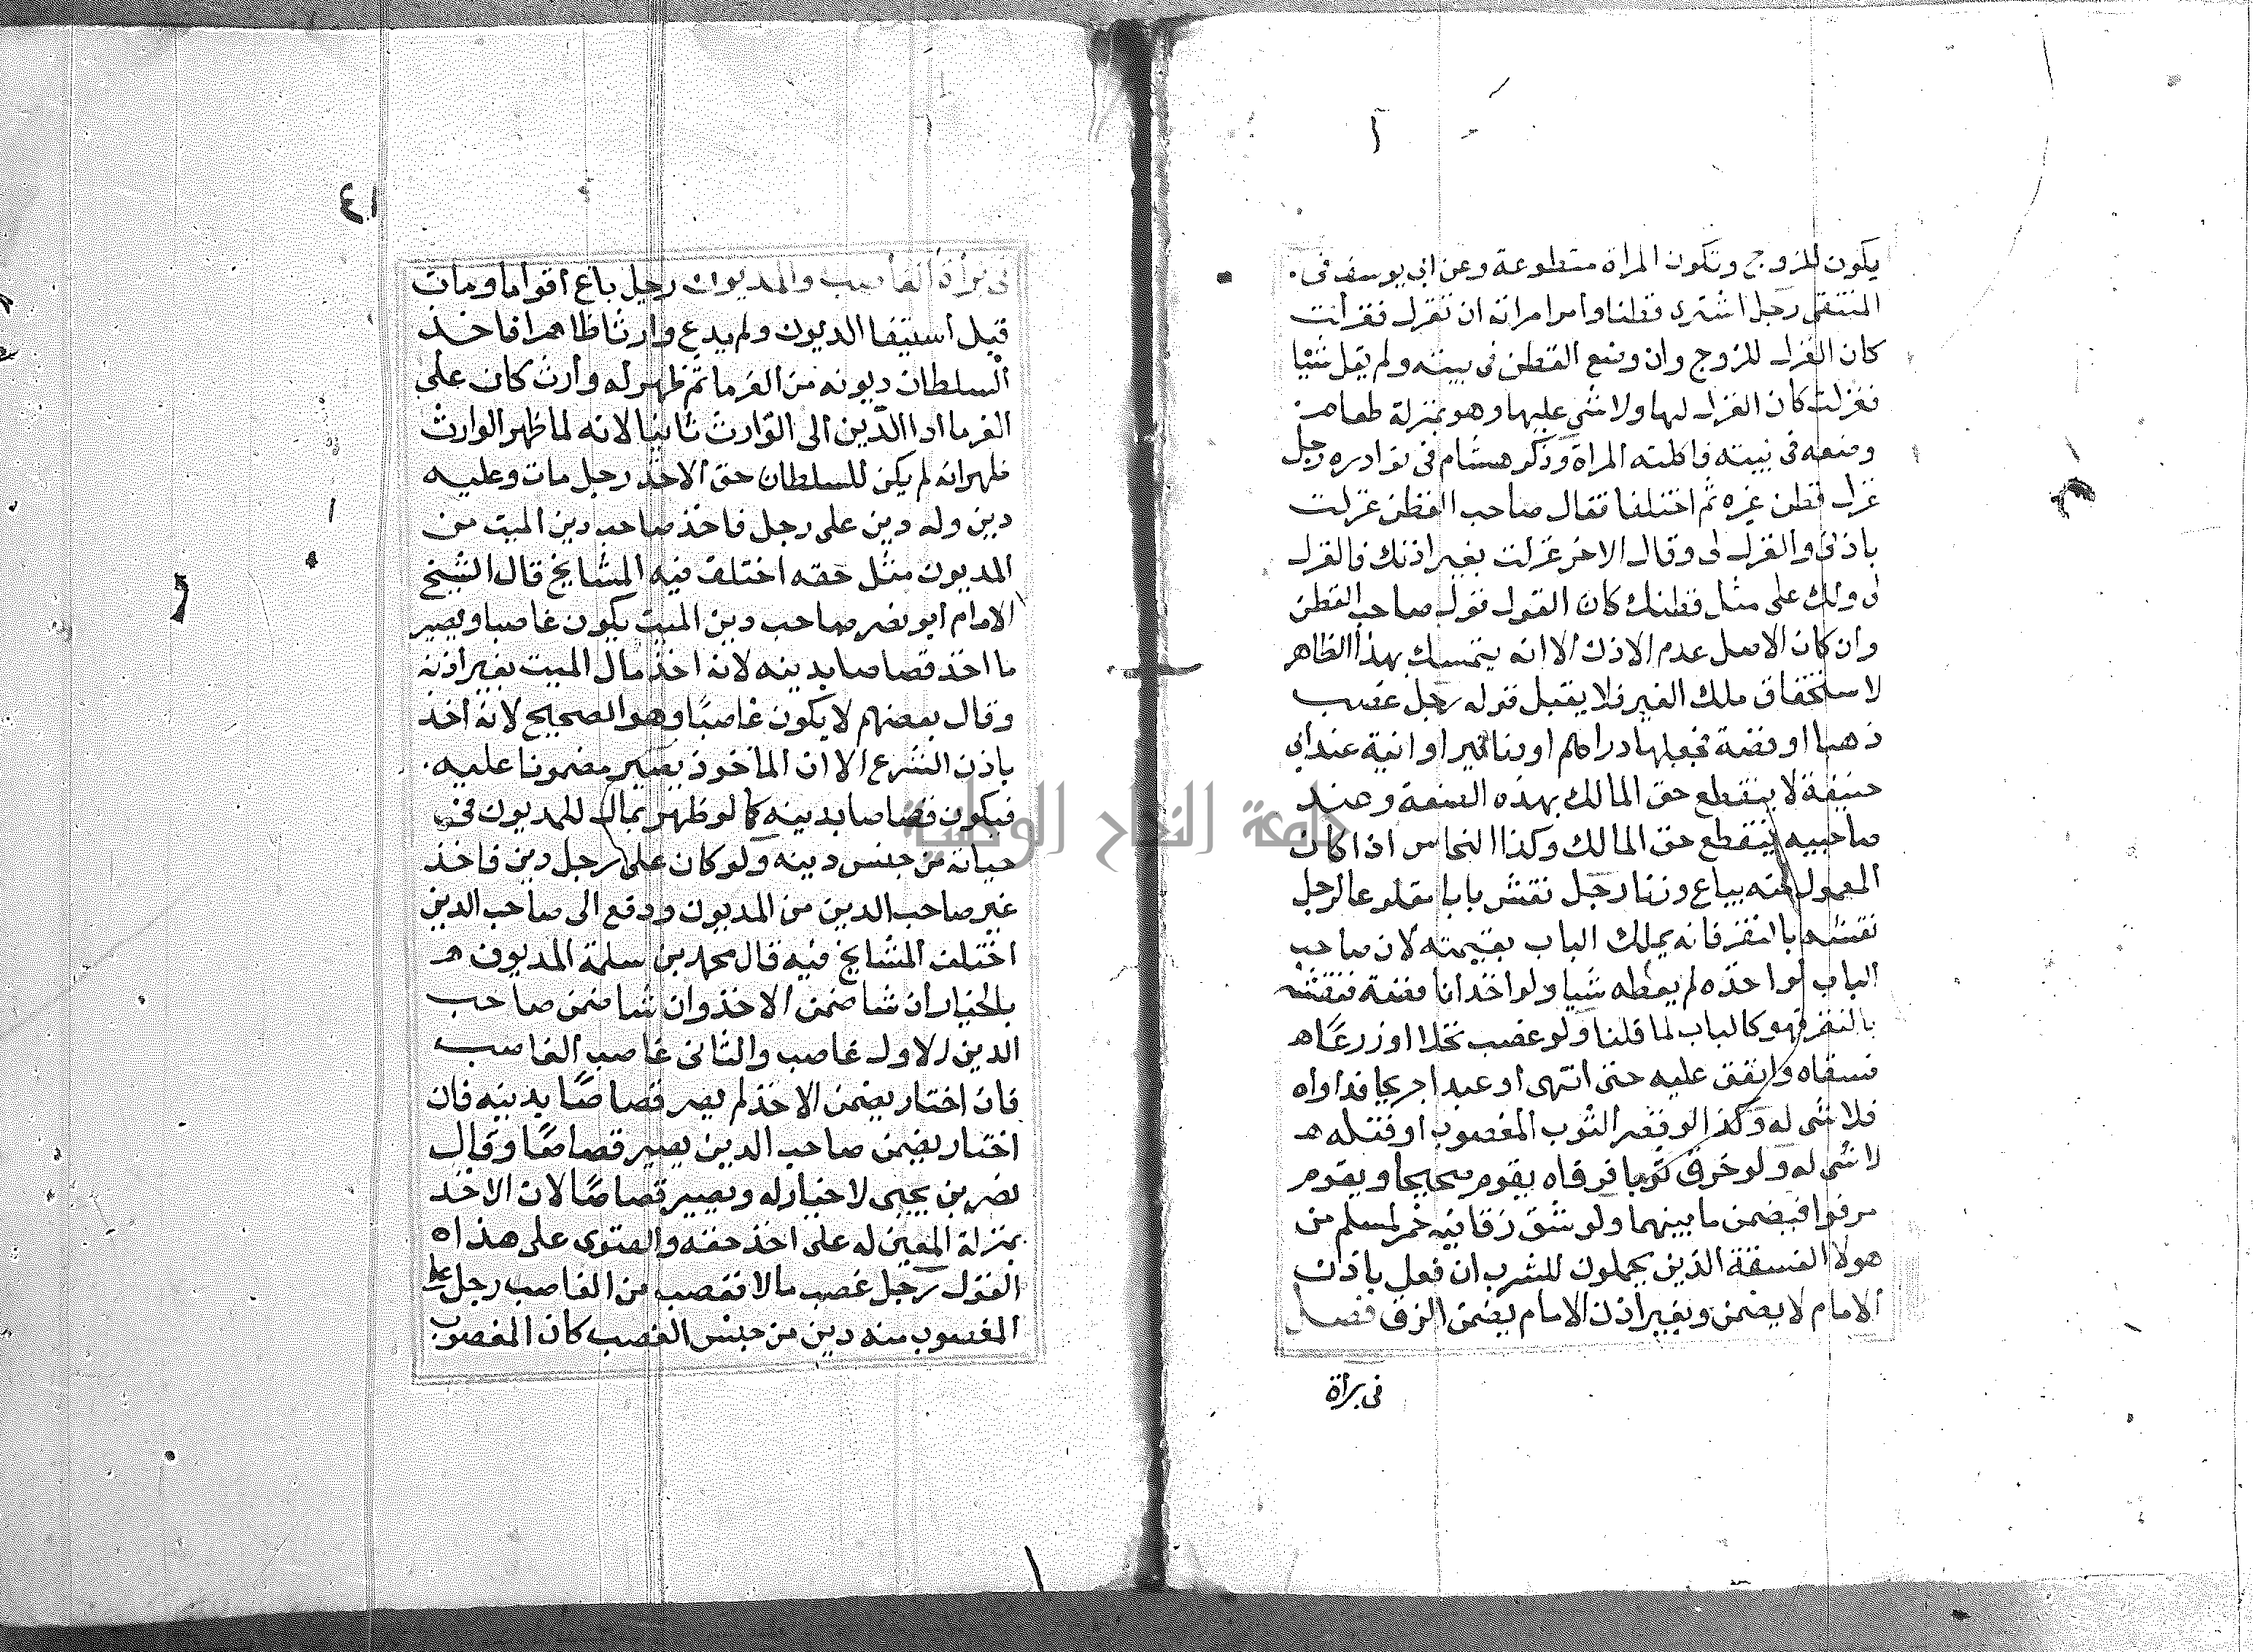 يكون للزوج وتكون المراة متطوعة وعن ابي يوسف في
المنتقى رجل اشترى قطنا وأمر امراته ان تغزل فغزلت
كان الغزل للزوج وان وضع القطن في بيته ولم يقل شيا
فغزلت كان الغزل لها ولا شي عليها وهو بمنزلة طعام
وضعه في بيته فاكلته المراة وذكر هشام في نوادره رجل
غزل قطن غيره ثم اختلفا فقال صاحب القطن غزلت
باذني والغزل لي وقال الاخر غزلت بغير اذنك فالغزل
لي ولك على مثل قطنك كان القول قول صاحب القطن
وان كان الاصل عدم الاذن الا انه يتمسك بهذا الظاهر
لاستحقاق ملك الغير فلا يقبل قوله رجل غصب
ذهبا او فضة فجعلها دراهم او دنانير او انية عند ابي
حنيفة لا ينقطع حق المالك بهذه الصنعة وعند
صاحبيه ينقطع حق المالك وكذا النحاس اذا كان
المعمول منه يباع وزنا رجل نقش بابا مقلوعا لرجل
نقشه بالنقر فانه يملك الباب بقيمته لان صاحب
الباب لو اخذه لم يعطه شيا ولو اخذ انا فضة فنقشه
بالنقر فهو كالباب لما قلنا ولو غصب نخلا او زرعا
فسقاه وانفق عليه حتى انتهى او عبدا جريحا فداواه
فلا شي له وكذا لو قصر الثوب المغصوب او فتله
لا شي له ولو خرق ثوبا فرفاه يقوم صحيحا ويقوم
مرفوا فيضمن ما بينهما ولو شق زقا فيه خمر لمسلم من
هولا الفسقة الذين يحملون للشرب ان فعل باذن
الامام لا يضمن وبغير اذن الامام يضمن الزق فصل
في براة
في برأة الغاصب والمديون رجل باع أقواما ومات
قبل أستيفا الديون ولم يدع وارثا ظاهرا فاخذ
السلطان ديونه من الغرما ثم ظهر له وأرث كان على
الغرما ادا الدين الى الوارث ثانيا لانه لما ظهر الوارث
ظهر انه لم يكن للسلطان حق الاخذ رجل مات وعليه
دين وله دين على رجل فاخذ صاحب دين الميت من
المديون مثل حقه اختلف فيه المشايخ قال الشيخ
الامام أبو نصر صاحب دين الميت يكون غاصبا ويصير
ما اخذ قصاصا بدينه لانه اخذ مال الميت بغير اذنه
وقال بعضهم لا يكون غاصبا وهو الصحيح لانه اخذ
باذن الشرع الا ان الماخوذ يصير مضمونا عليه
فيكون قصاصا بدينه كما لو ظهر بمال للمديون في
حياته من جنس دينه ولو كان على رجل دين فاخذ
غير صاحب الدين من المديون ودفع الى صاحب الدين
اختلف المشايخ فيه قال محمد بن سلمة المديون
بالخيار أن شا ضمن الاخذ وان شا ضمن صاحب
الدين الاول غاصب والثاني غاصب الغاصب
فان اختار يضمن الاخذ لم يصر قصاصا بدينه فان
اختار يضمن صاحب الدين يصير قصاصا وقال
نصر بن يحيى لا خيار له ويصير قصاصا لان الاخذ
بمنزلة المعين له على اخذ حقه والفتوى على هذا
القول رجل غصب مالا فغصب من الغاصب رجل على
المغصوب منه دين من جنس الغصب كان المغصوب
جامعة النجاح الوطنية